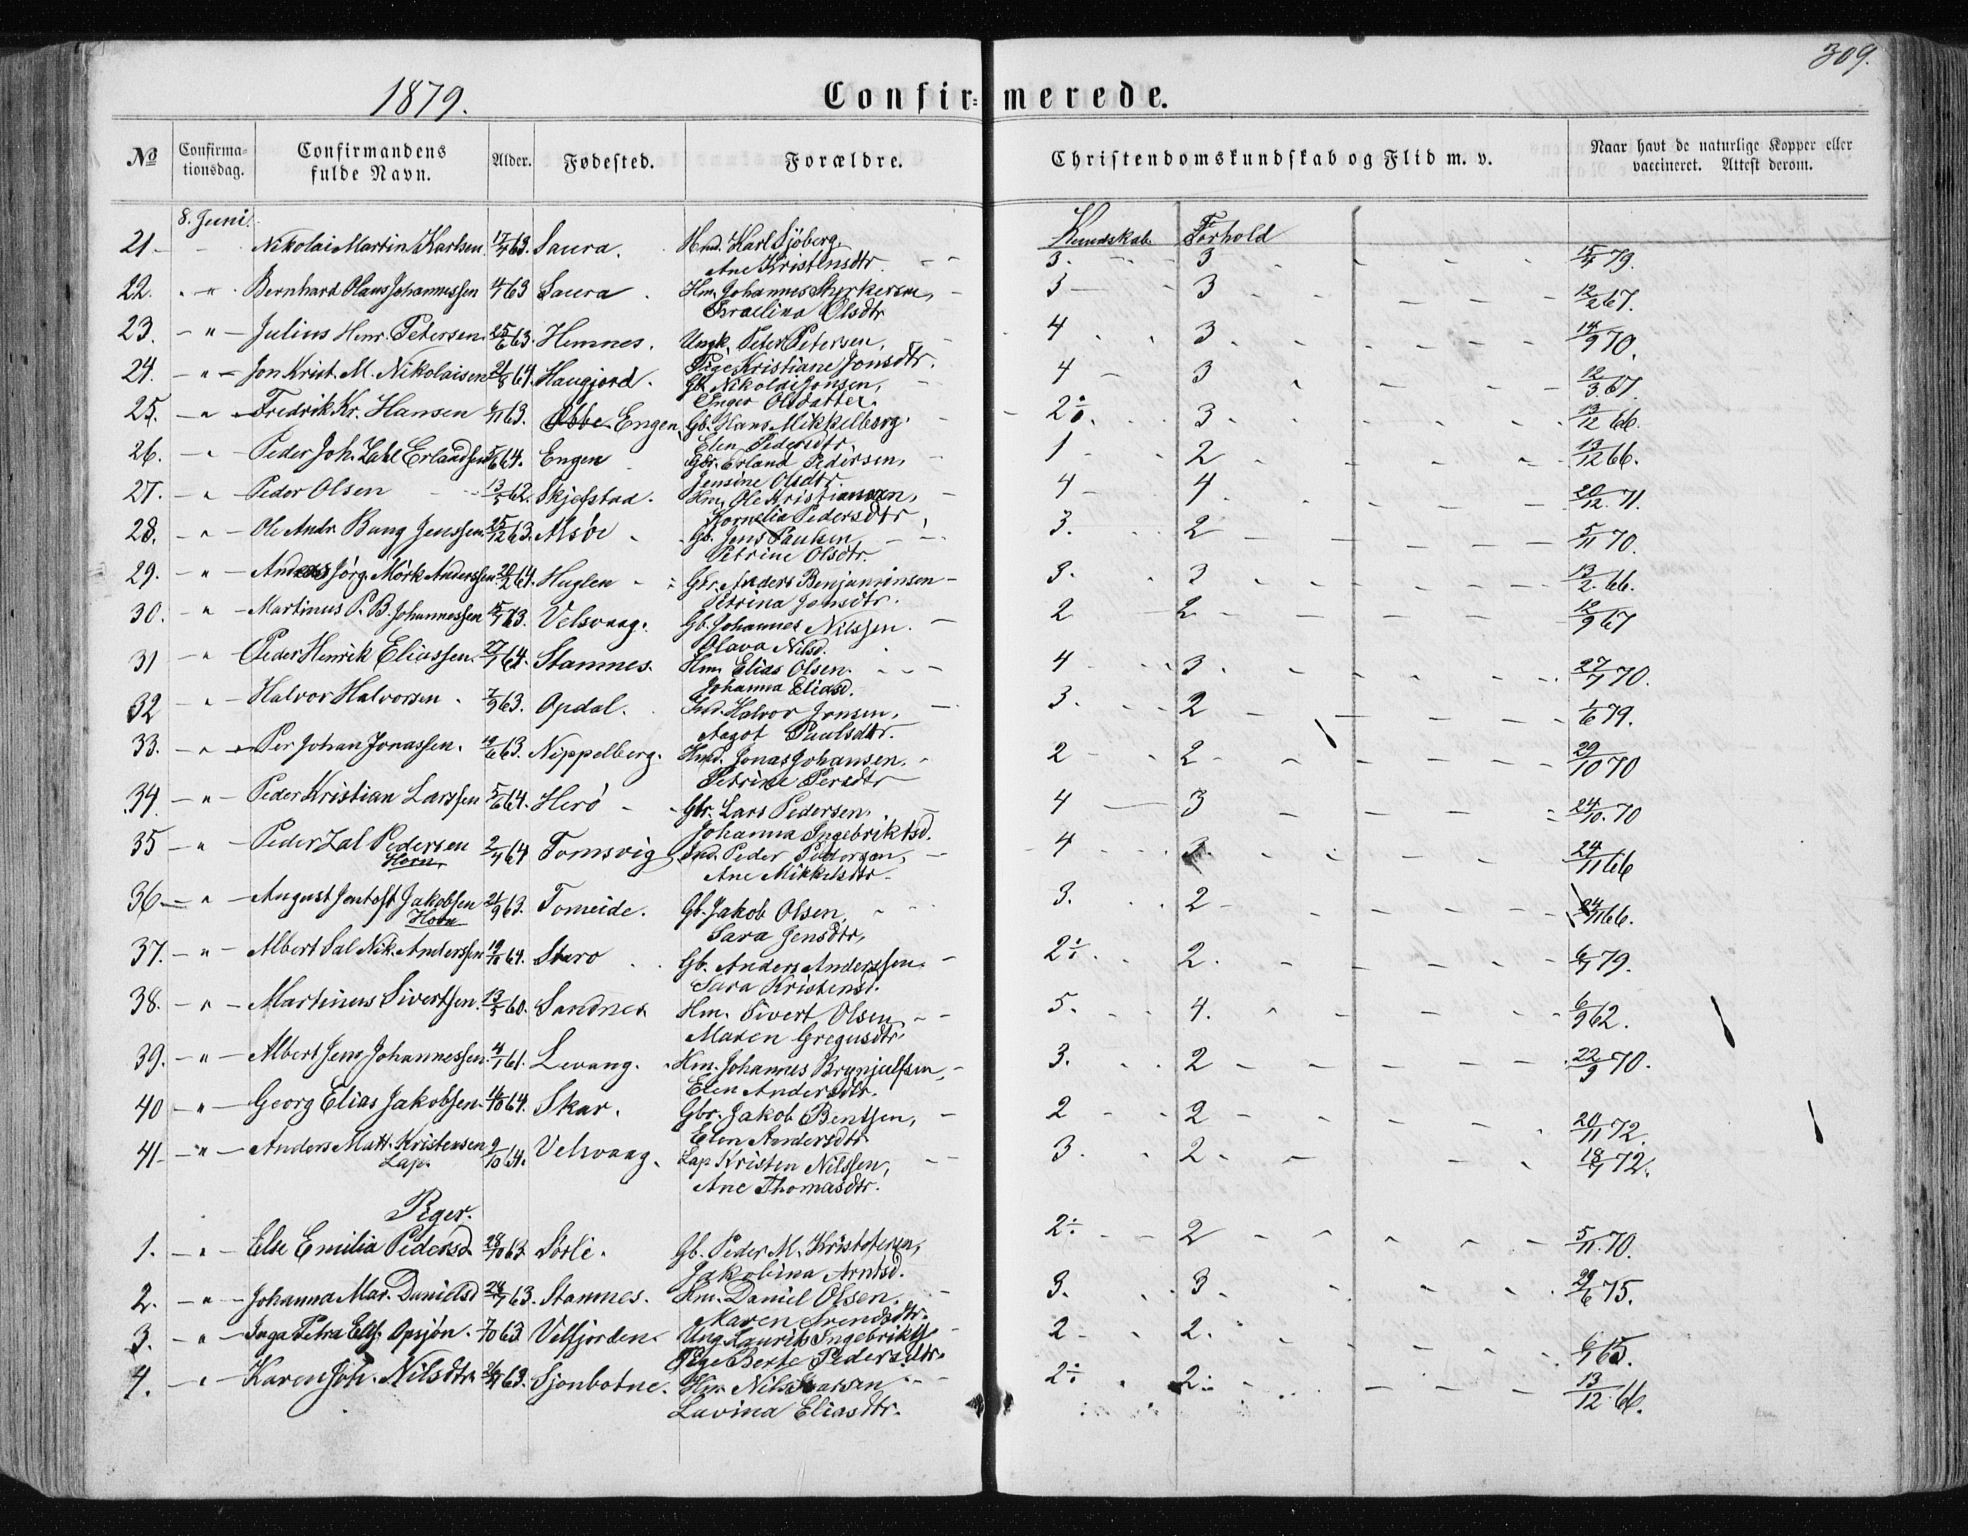 309.
1879. Confirmerede.
№ Confirmationsdag. Confirmandens fulde Navn. Alder. Fødested. Forældre. Christendomskundskab og Flid m. v. Naar havt de naturlige Kopper eller vaccineret. Attest derom.
8. Juni. Kundskab. Forhold
21. Nikolai Martin Karlsen 63. Saura. Karl Sjöberg, 3. 3 79.
Ane Kristensdtr.
22. " Bernhard Olaus Johannessen 63 Saura. Hm. Johannes 3 3 12/2 67.
Israelina Olsdtr
23. " Julius Henr. Petersen 25/6 63. Hemnes. Ungk. Peter Petersen, 4 3 14/9 70.
Pige Kristiane Jonsdtr.
24. " Jon Krist. M. Nikolaisen 64. Haugjord. Gb. Nikolai Jonsen, 4 3 12/3 67.
Inger Olsdatter.
25. " Fredrik Kr. Hansen 63. Engen Gb. Hans Mikkelborg. 2÷. 3 13/12 66.
Elen Pedersdtr.
26. " Peder Joh. Zahl Erlandsen 64. Engen Gbr. Erland Pedersen, 1 2 13/12 66.
Jensine Olsdtr.
27. " Peder Olsen 13/5 62. Skjefstad. Hm. Ole Kristiansen, 4 4. 20/12 71.
Kornelia Pedersdtr,
28. " Ole Andr. Bang Jenssen 25/12 63. Alsøe Gb. Jens Paulsen, 3. 2 5/11 70.
Petrine Olsdtr.
29. " Anders Jörg. Mörk Anderssen 20/2 64. Huglen Gbr. Anders Benjaminsen 3. 3 13/2 66.
Petrina Jensdtr.
30. " Martinus P. B. Johannessen 63. Velsvaag. Gb. Johannes Nilssen. 2 2 12/9 67
Olava Nilsd.
31 " Peder Henrik Eliassen. 64. Stamnes. Hm. Elias Olsen. 4 3. 70.
Johanna Eliasd.
32 " Halvor Halvorsen 63. Opdal. Ind. Halvor Jonsen, 3. 2 79.
Aagot Paulsdtr.
33. " Per Johan Jonassen. 63. Nippelberg. Hmd. Jonas Johansen. 2 2 29/10 70
Petrine Persdtr
34. " Peder Kristian Larssen 5/6 64. Herö Gbr. Lars Pedersen, 4 3 24/10 70
Johanna Ingebriktsd.
35 " Peder Zal Pedersen 64 Tomsvig Ind. Peder Pedersen, 4 24/11 66
Horn Ane Mikkelsdtr.
36 " August Jentoft Jakobsen 21/9 63. Tomeide. Gb. Jakob Olsen, 3. 2 24/11 66.
Horn Sara Jensdtr,
37. " Albert Sal Nik. Anderssen 64. Staro Gb. Anders Anderssen. 2÷. 2. 79.
Sara Kristensd.
38. " Martinus Sivertsen. 13/5 60. Sandnes Hm. Sivert Olsen 5. 4. 6/9 62.
Maren Gregusdtr.
39. " Albert Jens Johannessen. 61. Levang. Hm. Johannes Brynjulfsen, 3. 2 22/9 70.
Elen Andersdtr.
40 " Georg Elias Jakobsen. 64. Skar. Gbr. Jakob Bentsen, 2 2 20/11 72.
Elen Andersdtr
41. " Anders Matt. Kristensen 9/10 64. Velsvaag. Lap Kristen Nilssen, 3. 2. 72.
Lap. Ane Thomasdtr.
Piger.
1. " Else Emilia Pedersd. 28/10 63. Sörli. Gb. Peder M. Kristofersen, 2÷ 2 5/11 70.
Jakobina Arntsd.
2. " Johanna Mar. Danielsd 63. Stamnes. Hm. Daniel Olsen. 3. 3 29/6 75.
Maren
3. " Inga Petra Opsjön. 7/10 63. Velfjorden. Ung. Laurits 2 2. 65.
Pige Berte Pedersdtr.
4. " Karen Joh. Nilsdtr. 63. Sjonbotne. Hm. Nils 2÷ 2. 13/12 66.
Lavina Eliasdtr.